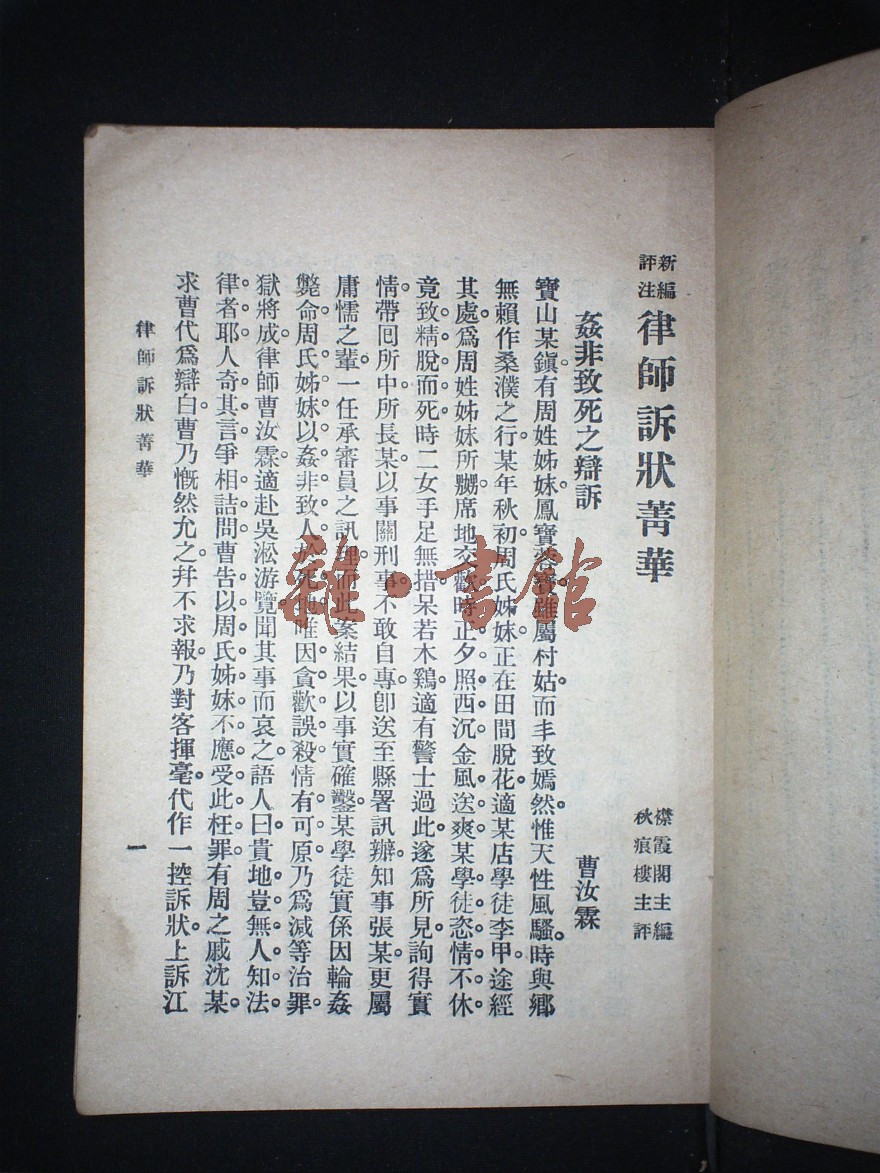 新編評注律師訴狀菁華
襟霞閣主編
秋痕樓主評
姦非致死之辯訴 曹汝霖
寶山某鎭有周姓姊妹鳳寶蓉寶。雖屬村姑。而丰致嫣然。惟天性風騷。時與鄕
無賴作桑濮之行。某年秋初。周氏姊妹。正在田間脫花。適某店學徒李甲。途經
其處。爲周姓姊妹所嬲。席地交歡。時正夕照西沉。金風送爽。某學徒恣情不休。
竟致精脫而死。時二女手足無措。呆若木鷄。適有警士過此。遂爲所見。詢得實
情。帶回所中。所長某以事關刑事。不敢自專。卽送至縣署訊辦。知事張某。更屬
庸懦之輩。一任承審員之訊理。而此案結果。以事實確鑿。某學徒實係因輪姦
斃命。周氏姊妹以姦非致人於死地。唯因貪歡誤殺。情有可原。乃爲減等治罪。
獄將成。律師曹汝霖。適赴吳淞游覽。聞其事而哀之。語人曰。貴地豈無人知法
律者耶。人奇其言。爭相詰問。曹告以周氏姊妹不應受此枉罪。有周之戚沈某。
求曹代爲辯白。曹乃慨然允之。幷不求報。乃對客揮毫。代作一控訴狀。上訴江
律師訴狀菁華
一
雜·書館